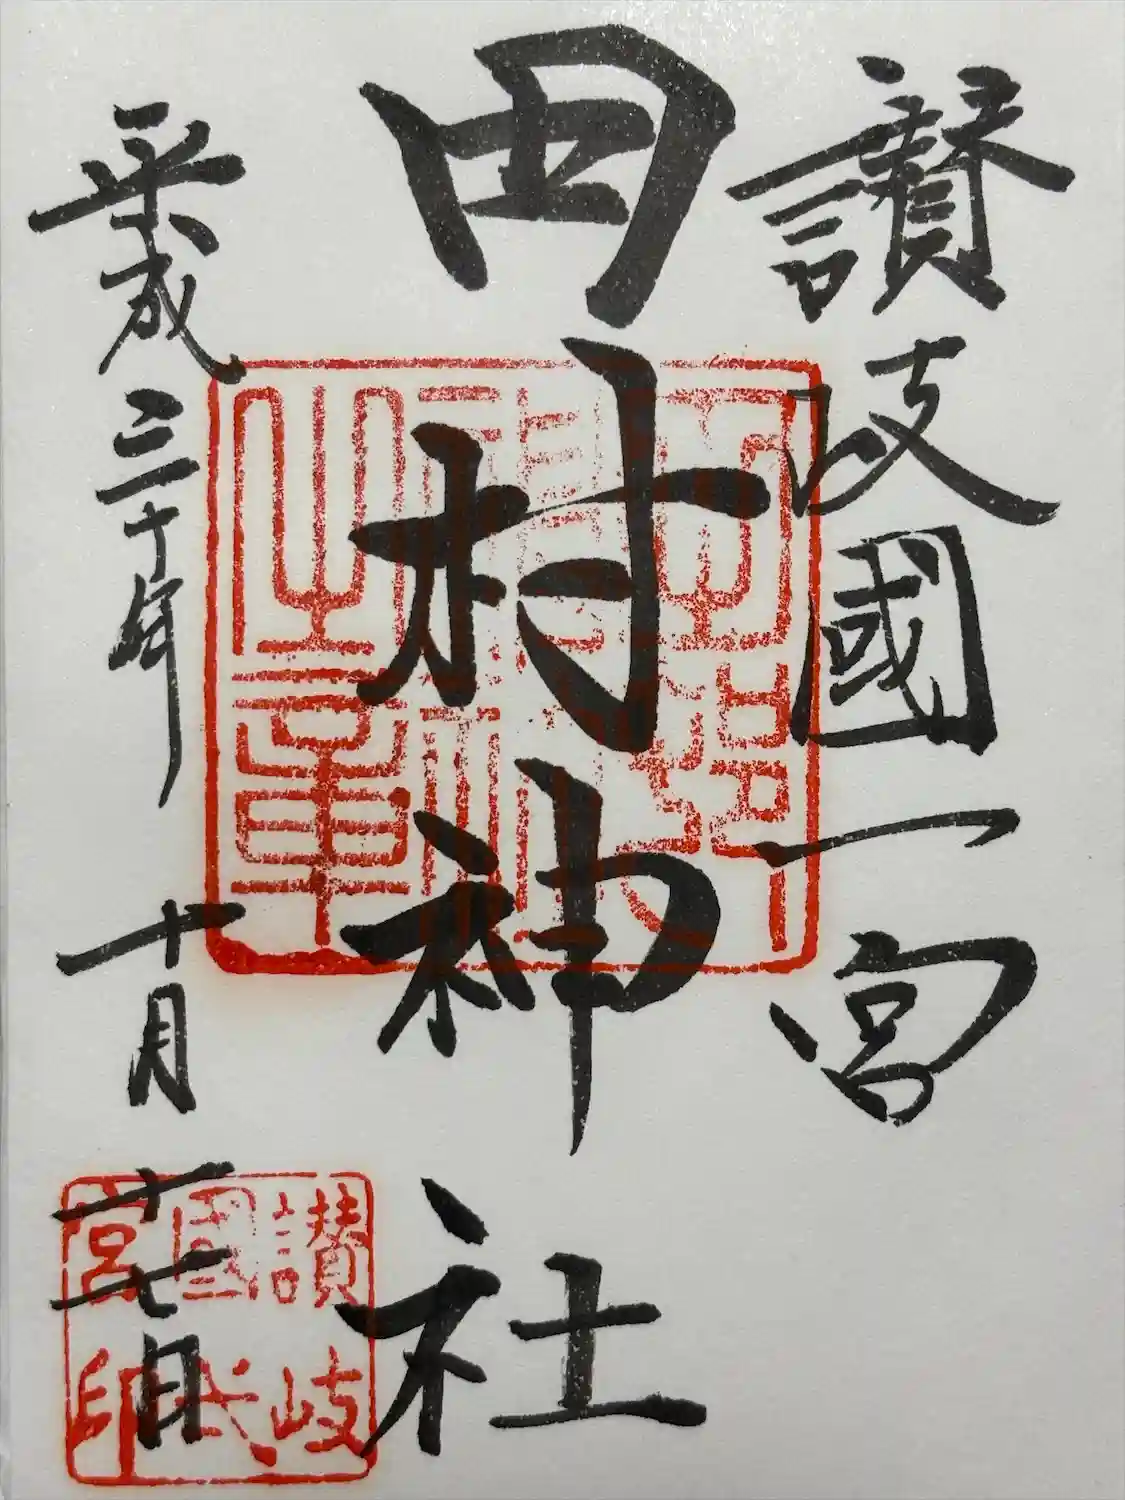 讃岐國一宮
田村神社
平成三十年十月廿七日
讃岐
國弌
宮印